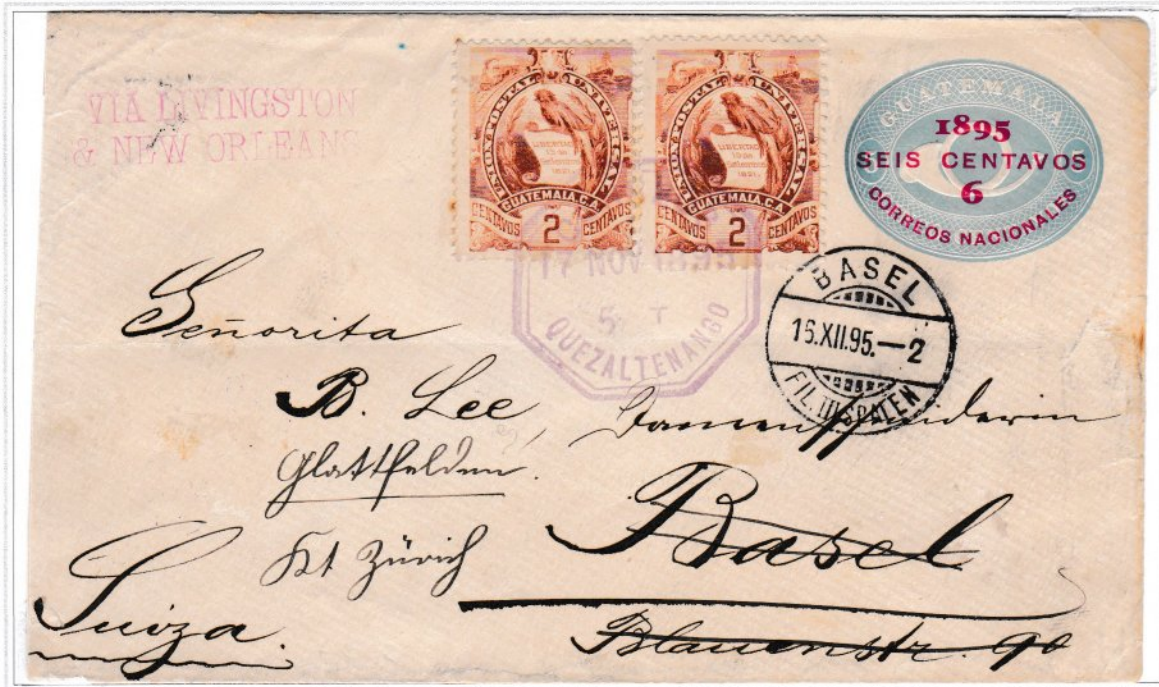 VIA LIVINGSTON
& NEW ORLEANS
UNION POSTAL UNIVERSAL
LIBERTAD
15 de
Setiembre
1821
GUATEMALA, C.A.
CENTAVOS 2 CENTAVOS
UNION POSTAL UNIVERSAL
LIBERTAD
15 de
Setiembre
1821
GUATEMALA, C.A.
CENTAVOS 2 CENTAVOS
GUATEMALA
1895
SEIS CENTAVOS
6
CORREOS NACIONALES
17 NOV 1895
5 T
QUEZALTENANGO
BASEL
16.XII.95.—2
FIL. III SPALEN
Señorita
B. Lee, Damenschneiderin
Glattfelden.
Basel
Kt Zürich
Suiza.
Blauenstr. 90